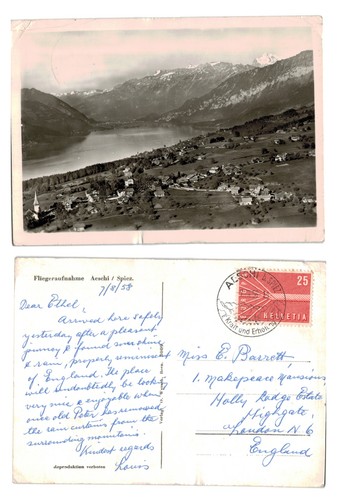 Fliegeraufnahme Aeschi / Spiez.
7/8/58
Dear Ethel,
Arrived here safely
yesterday after a pleasant
journey & found sunshine
& rain, properly reminiscent
of England. The place
will undoubtedly be looking
very nice & enjoyable when
once old Peter has removed
the rain curtains from the
surrounding mountains.
Kindest regards
Louis
Reproduktion verboten
AESCHI
Kraft und Erholung
25
HELVETIA
Miss E. Barrett
1, Makepeace Mansions
Holly Lodge Estate
Highgate,
London N 6
England